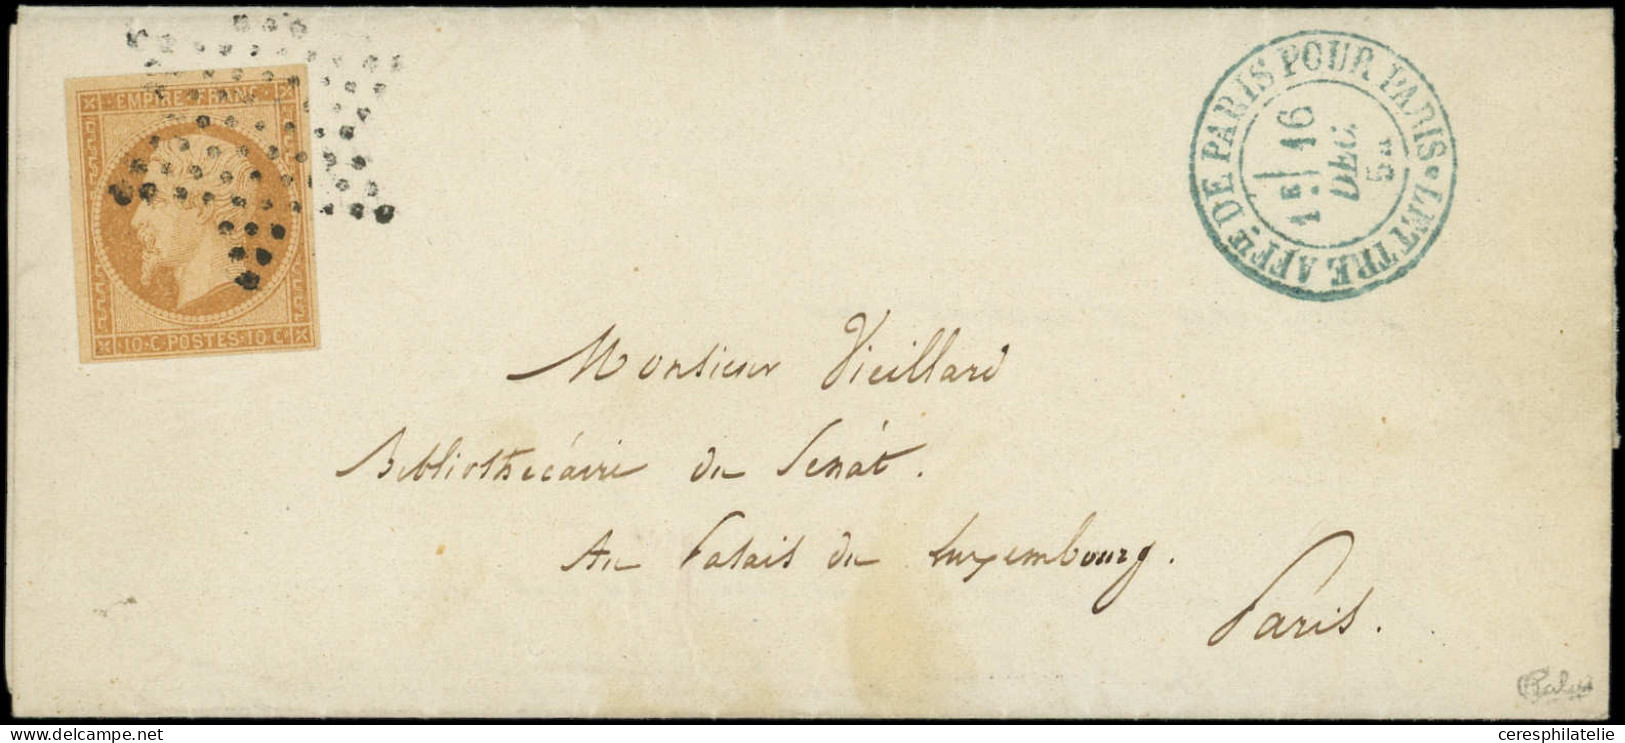 EMPIRE·FRANC·
10·C·POSTES·10·C.
LETTRE AFF^IE DE PARIS POUR PARIS
1^E 16 DEC. 5^H
Monsieur Vieillard
Bibliothécaire du Sénat.
Au Palais du Luxembourg.
Paris.
ceresphilatelie